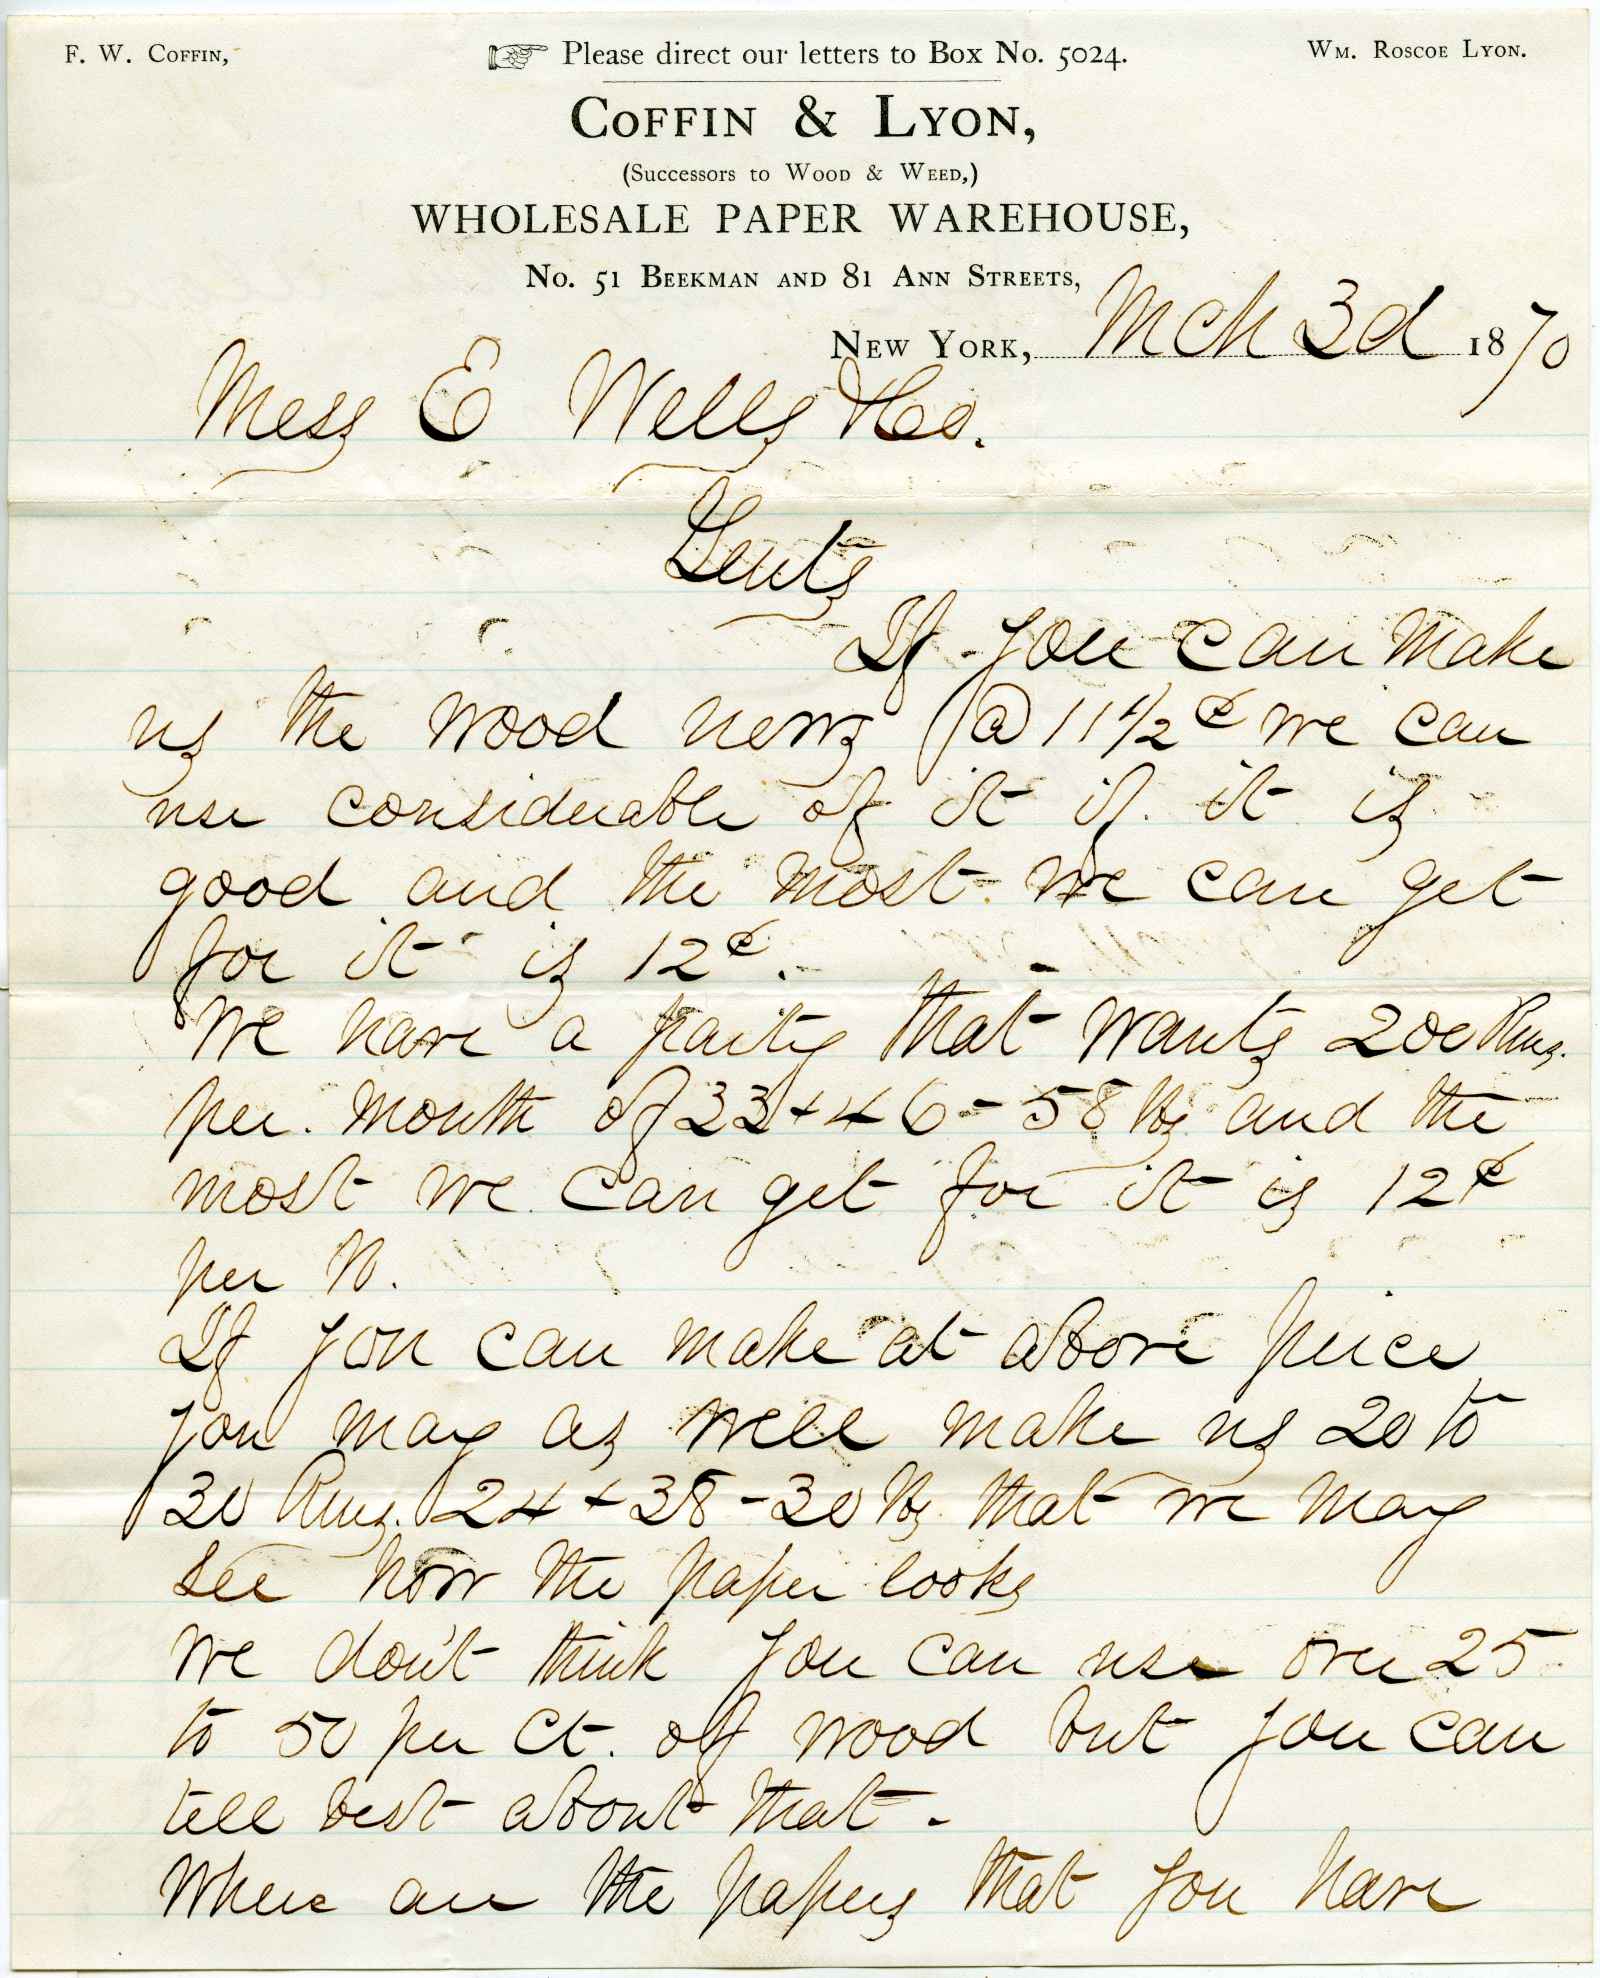 F. W. Coffin,
Please direct our letters to Box No. 5024.
Wm. Roscoe Lyon.
Coffin & Lyon,
(Successors to Wood & Weed,)
WHOLESALE PAPER WAREHOUSE,
No. 51 Beekman and 81 Ann Streets,
New York, Mch 3d 1870
Mess E Wells & Co.
Gents
If you can make
us the wood news @ 11 1/2 ¢ we can
use considerable of it if it is
good and the most we can get
for it is 12¢.
We have a party that wants 200 Rms.
per. month of 33 + 46 - 58 lbs and the
most we can get for it is 12¢
per lb.
If you can make at above price
you may as well make us 20 to
30 Rms. 24 + 38 - 30 lbs. that we may
see how the paper looks
We don't think you can use over 25
to 50 per Ct. of wood but you can
tell best about that -
Where are the papers that you have